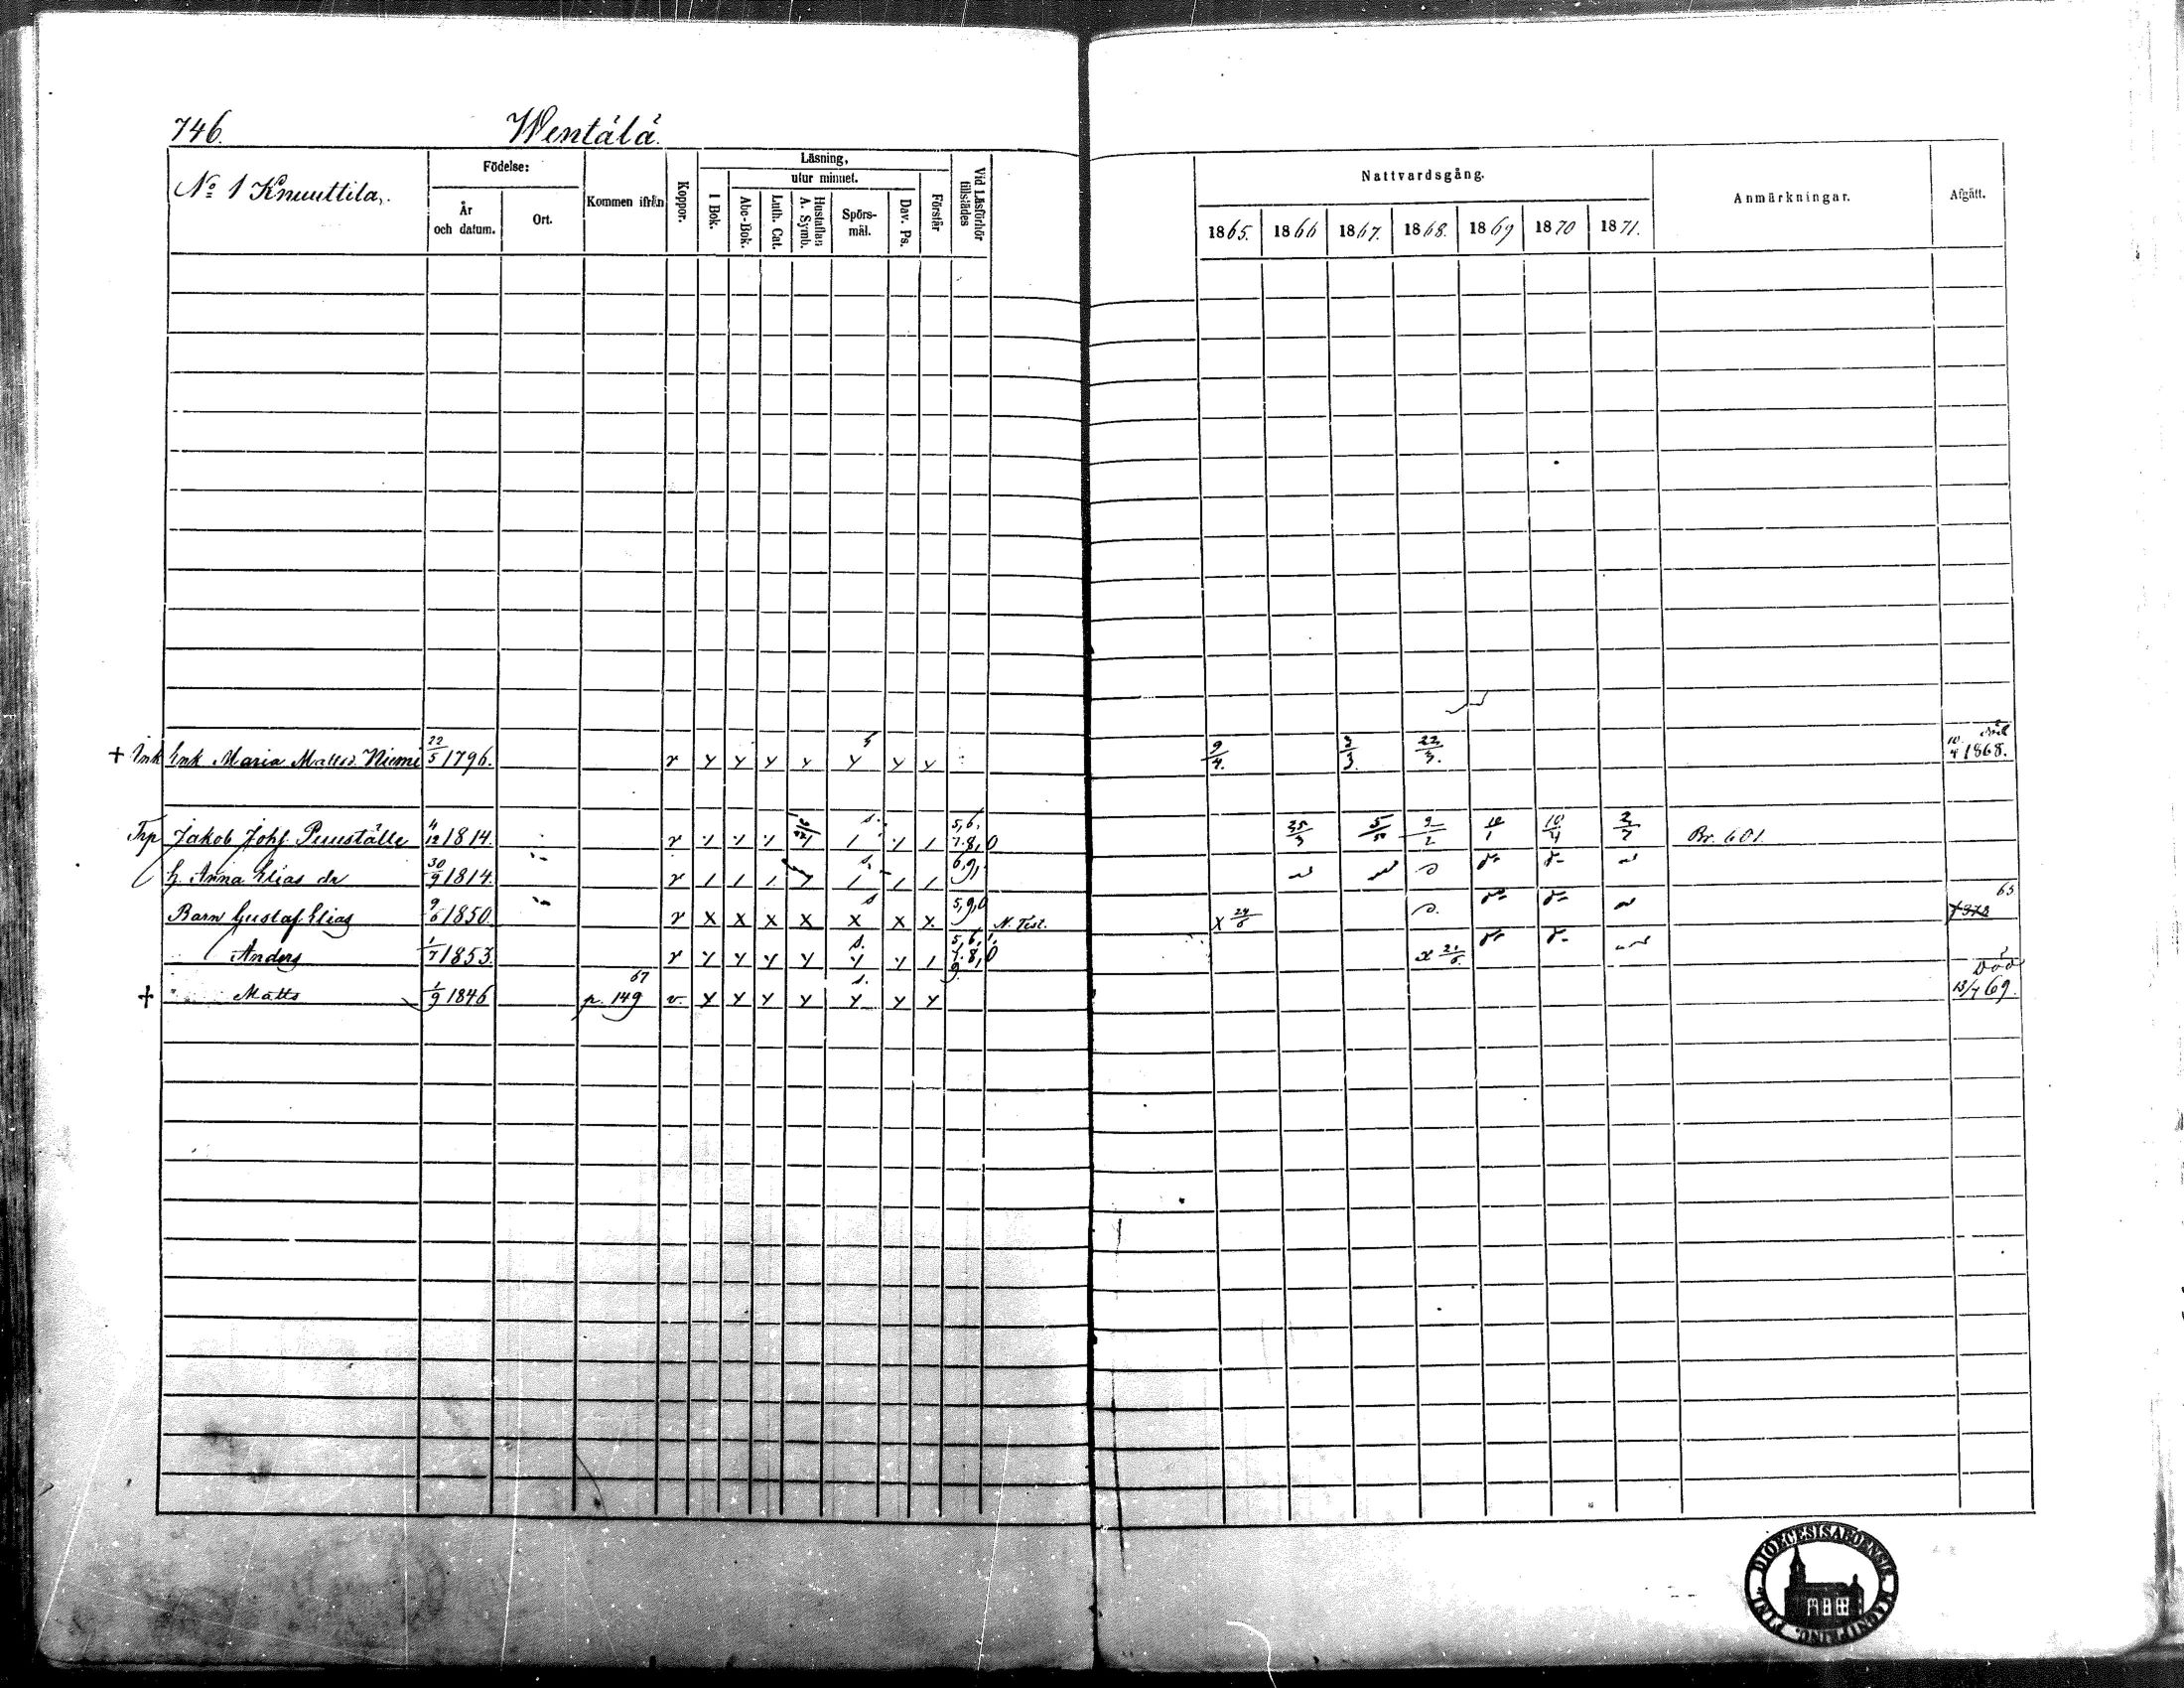 746.
Wentälä.
No 1 Knuuttila.
Födelse:
År och datum.
Ort.
Kommen ifrån
Koppor.
Läsning,
utur minnet.
I Bok.
Abc-Bok.
Luth. Cat.
Hustaflan A. Symb.
Spörs-mål.
Dav. Ps.
Förstår
Vid Läsförhör tillstädes
Nattvardsgång.
1865. 1866 1867. 1868. 1869 1870 1871.
Anmärkningar.
Afgått.
+ Ink Enk Maria Mattsd. Niemi 22/5 1796. v y y y y y y y 9/4. 3/3. 22/3. död 10/4 1868.
Trp Jakob Johs. Punställe 4/12 1814. v 5,6, 7.8,0 25/3 9/2 10/1 10/4 2/7 Br. 601.
h. Anna Elias dr 30/9 1814. v 6,9,
Barn Gustaf Elias 9/6 1850. v x x x x x x x. 5,9,0 N. Test. x 24/6 65
Anders 1/7 1853. v y y y y y y 5,6,1, 7.8,0 9. x 21/6.
+ " Matts 1/9 1846 67 p. 149 v. y y y y y y y Död 13/7 69.
DIOECESIS ABOENSIS